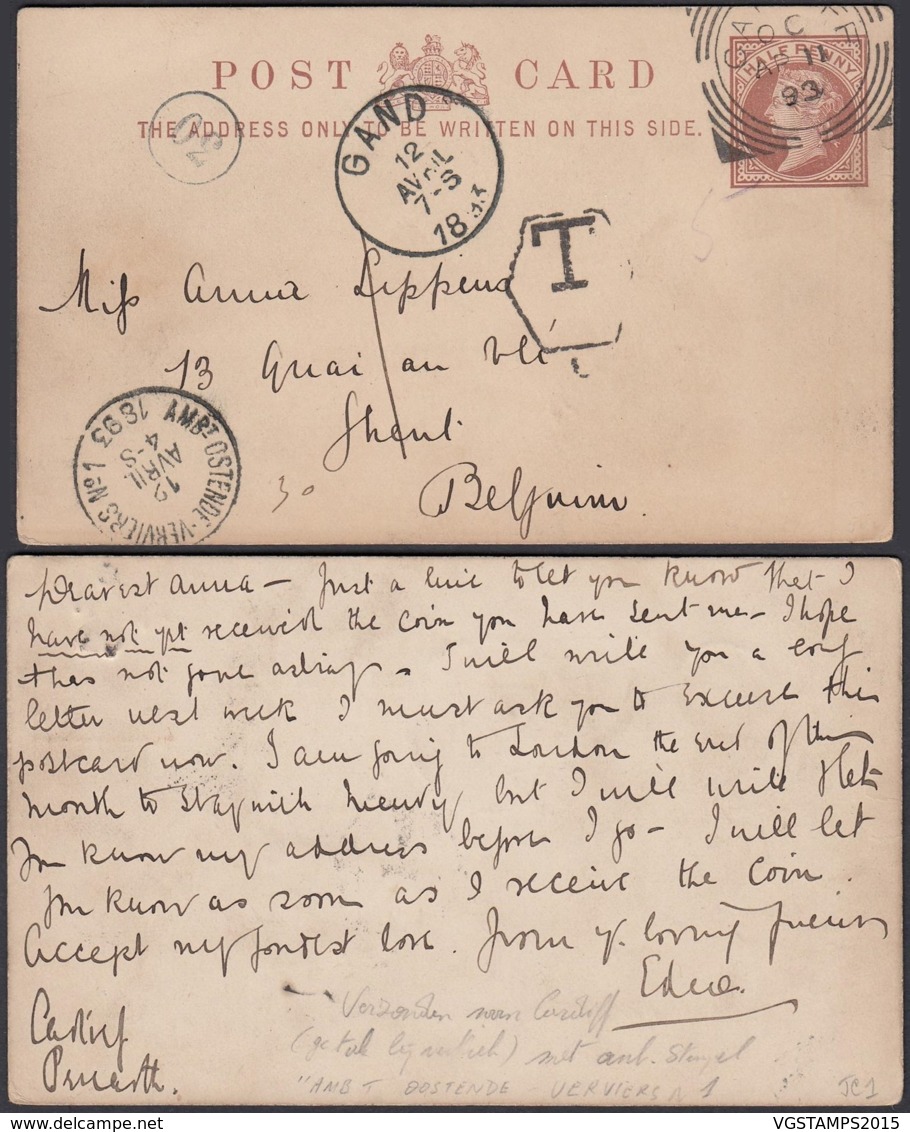 POST CARD
THE ADDRESS ONLY TO BE WRITTEN ON THIS SIDE.
HALF PENNY
OC
AP 11
93
30
GAND
12
AVRIL
7-S
1893
T
5
Miss Anna Lippens
13 Quai au Blé
Ghent
Belgium
30
AMBT OSTENDE-VERVIERS No 1
12
AVRIL
4-S
1893
Dearest Anna - Just a line to let you know that I
have not yet received the coin you have sent me - I hope
it has not gone astray - I will write you a long
letter next week I must ask you to excuse this
postcard now. I am going to London the end of this
month to stay with but I will write & let
you know my address before I go - I will let
you know as soon as I receive the coin.
Accept my fondest love. From yr. loving friend
Edue.
Cardiff
Penarth.
Verzonden van Cardiff
met amb. Stempel
"AMBT OOSTENDE VERVIERS N 1
JC1
VGSTAMPS2015